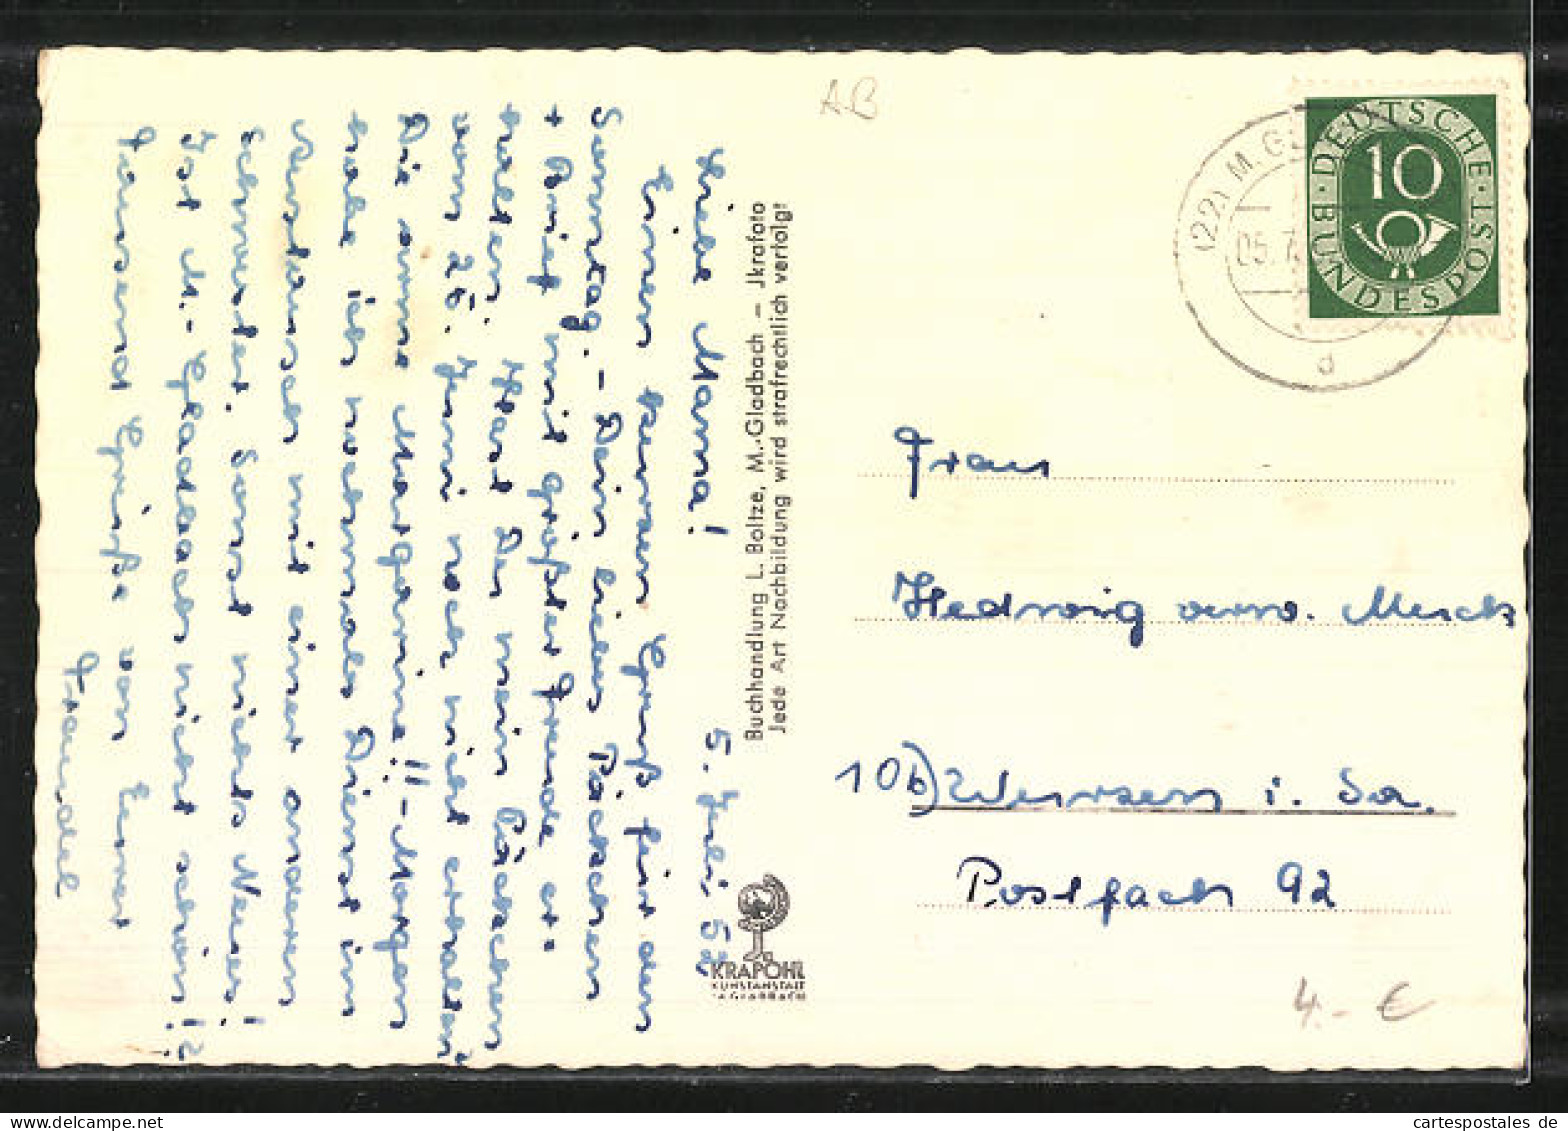 Liebe Mama! 5. Juli 52
Einen kurzen Gruß für den
Sonntag. - Dein liebes Päckchen
+ Brief mit großter Freude er-
halten. Hast Du mein Päckchen
vom 26. Juni noch nicht erhalten?
Die arme Margarine!! - Morgen
habe ich nochmals Dienst im
Austausch mit einer anderen
Schwester. Sonst nichts Neues!
Ist M.-Gladbach nicht schön!?
Tausend Grüße von Eurer
Traudel
Buchhandlung L. Boltze, M.-Gladbach — Jkrafoto
Jede Art Nachbildung wird strafrechtlich verfolgt
KRAPOHL
KUNSTANSTALT
M.GLADBACH
AB
(22) M.G
05.7
d
DEUTSCHE BUNDESPOST
10
Frau
Hedwig verw. Munck
10b) Wurzen i. Sa.
Postfach 92
4.- €
cartespostales de